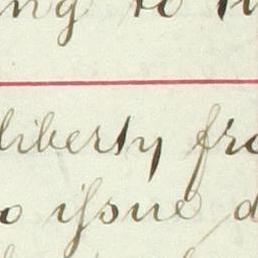 ng to
liberty fro
o issue d